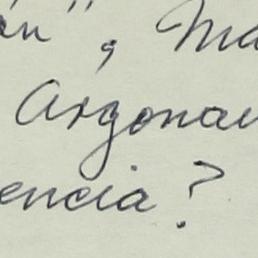 án", Ma
Argonau
encia?